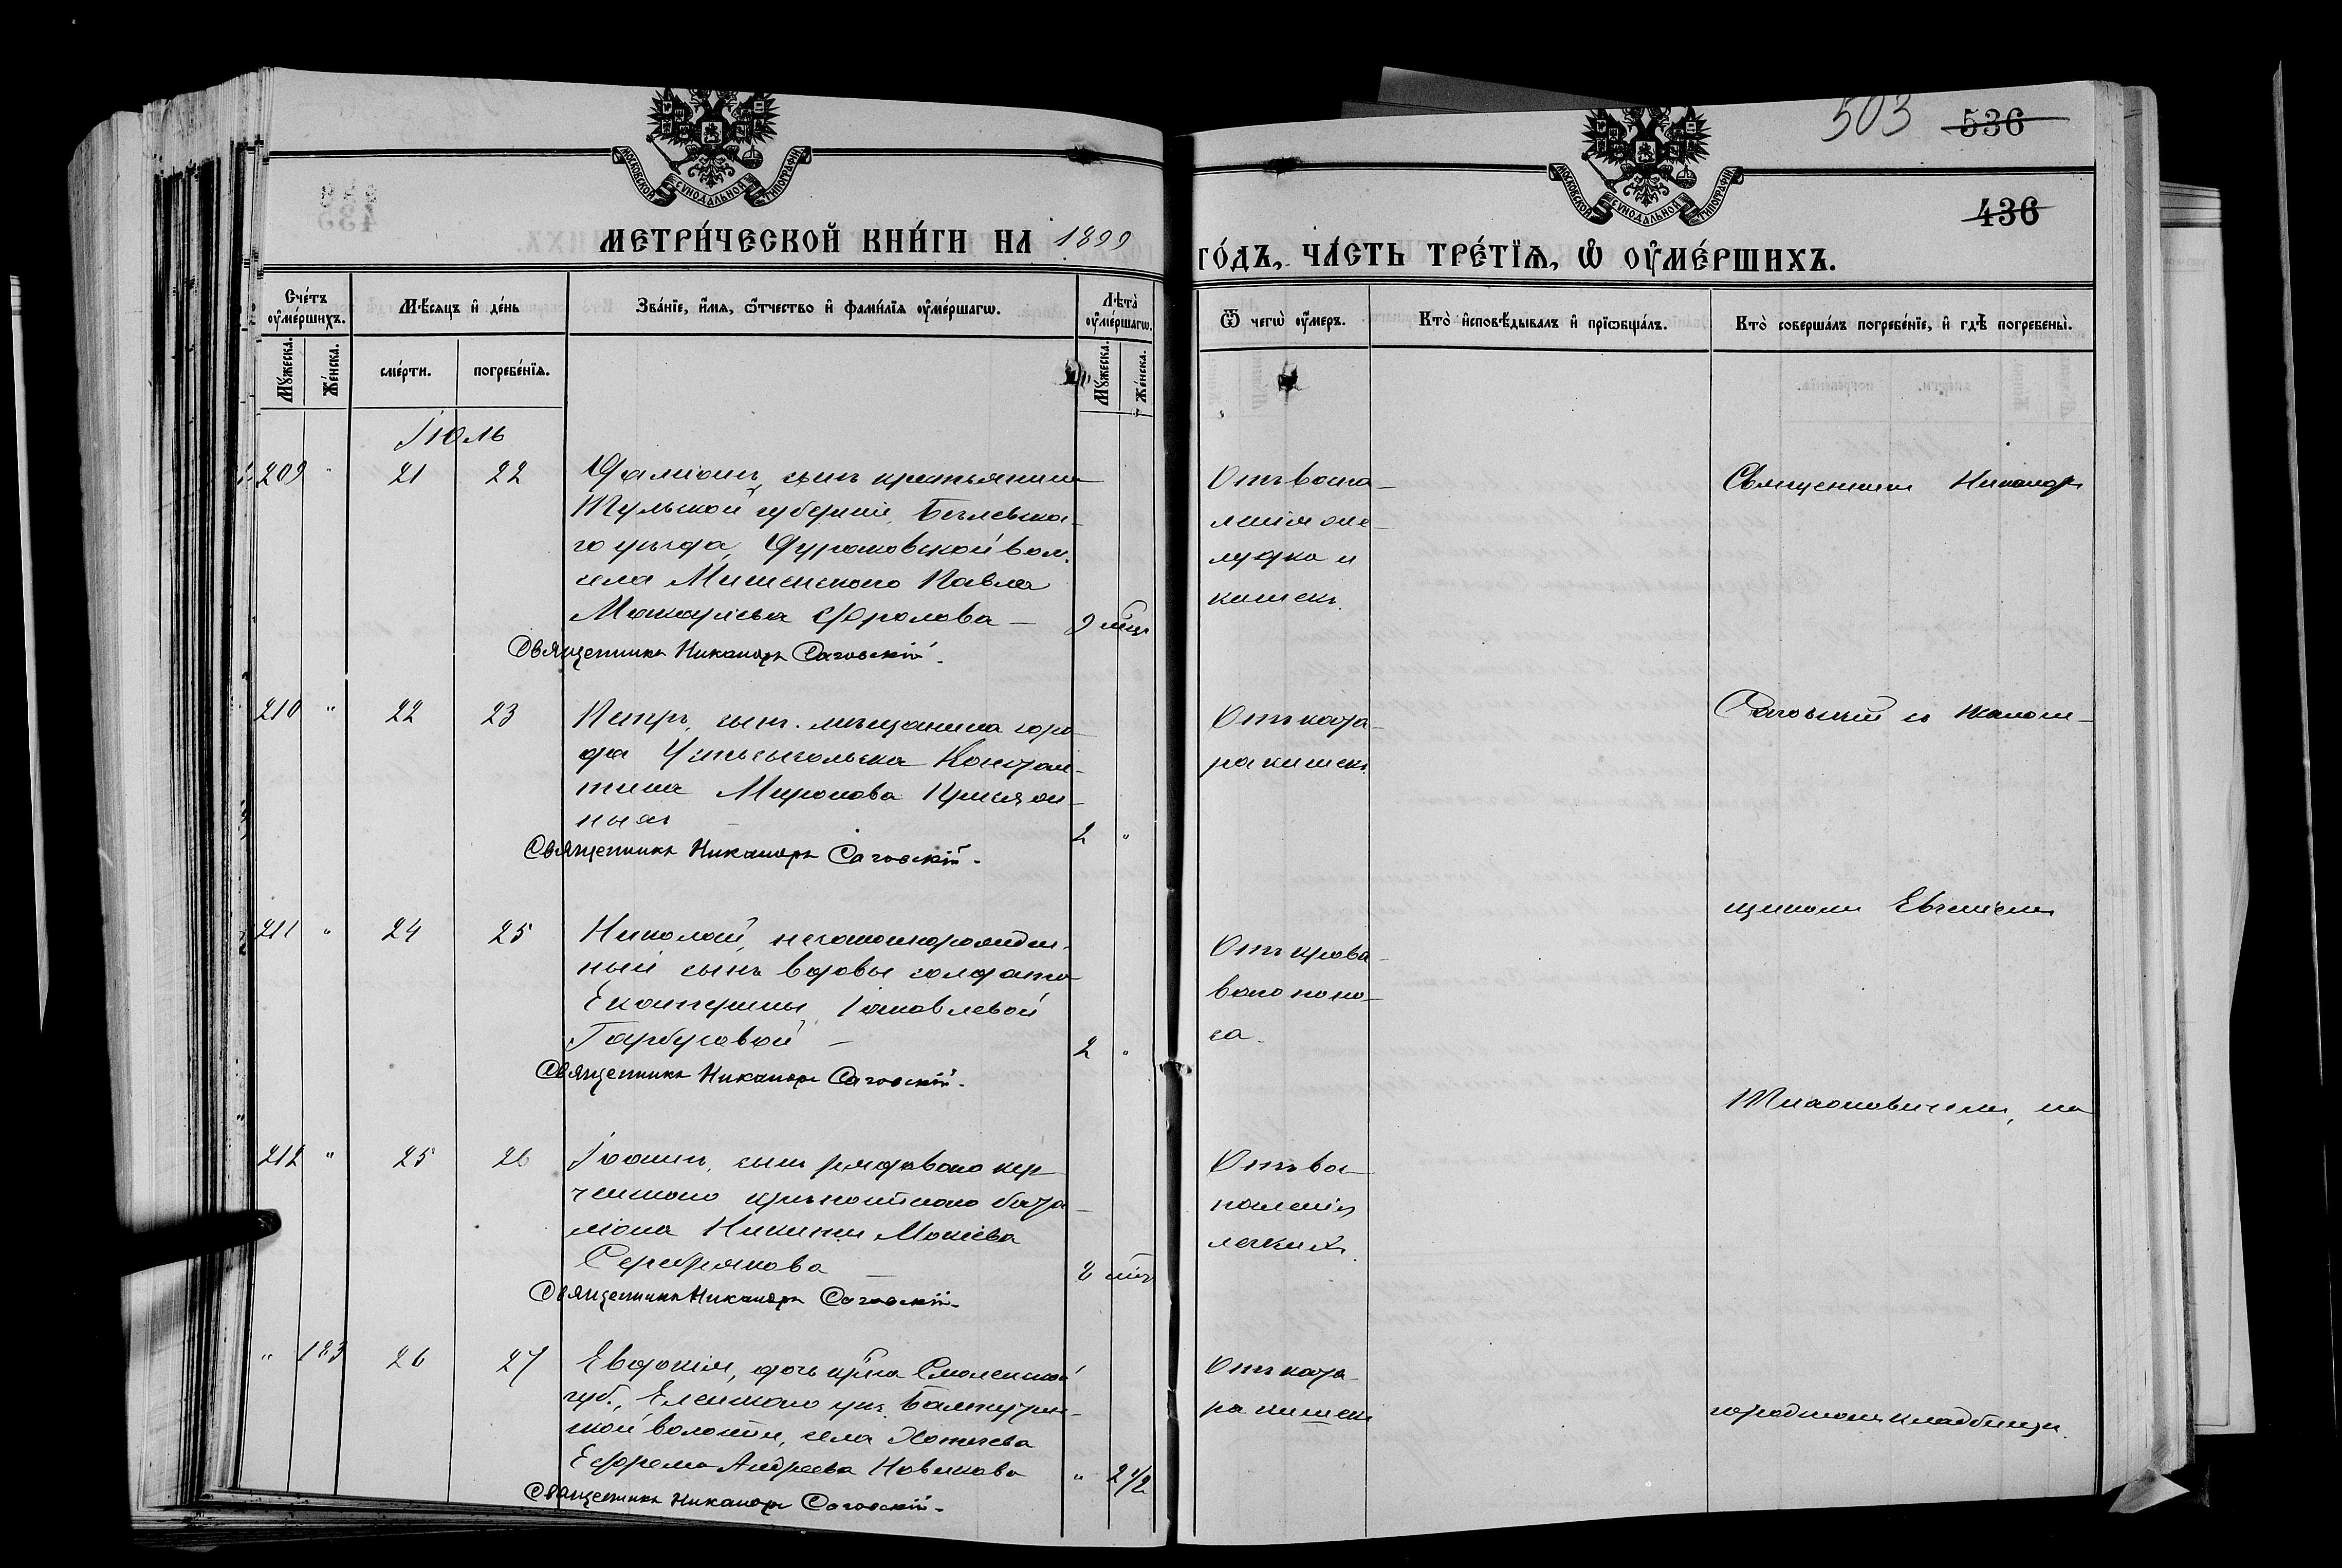 503 536
436
МОСКОВСКОЙ СѴНОДАЛЬНОЙ ТИПОГРАФІИ
МОСКОВСКОЙ СѴНОДАЛЬНОЙ ТИПОГРАФІИ
МЕТРИ́ЧЕСКОЙ КНИ́ГИ НА 1899
ГО́ДЪ, ЧА́СТЬ ТРЕ́ТІѦ, Ѡ҆ ОУ҆МЕ́РШИХЪ.
Сче́тъ оу҆ме́ршихъ.
Мꙋ́жеска.
Же́нска.
Мѣ́сяцъ и҆ де́нь
сме́рти.
погребе́нїѧ.
Зва́нїе, и҆́мѧ, ѻ҆́тчество и҆ фами́лїѧ оу҆ме́ршагѡ.
Лѣ́та оу҆ме́ршагѡ.
Мꙋ́жеска.
Же́нска.
Ѿ чегѡ̀ оу҆́меръ.
Кто̀ и҆сповѣ́дывалъ и҆ прїѡбща́лъ.
Кто̀ соверша́лъ погребе́нїе, и҆ гдѣ̀ погребены̀.
Іюль
209 " 21 22
сынъ крестьянина
Тульской губерніи, Бѣлевска-
го уѣзда, вол.
села Мишенского Павла
Макарьева Фролова — 9 мѣц.
Священникъ Никаноръ Саговскій.
Отъ воспа-
ленія же-
лудка и
кишекъ.
Священникъ Никаноръ
210 " 22 23
Петръ, сынъ мѣщанина горо-
да Устьсысольска Констан-
тина Миронова
ныхъ 2 "
Священникъ Никаноръ Саговскій.
Отъ ката-
ра кишекъ.
Саговскій съ псалом-
щикомъ Евгеніемъ
211 " 24 25
Николай, незаконнорожден-
ный сынъ вдовы солдата
Екатерины Іаковлевой
Гарбузовой — 2 "
Священникъ Никаноръ Саговскій.
Отъ крова-
ваго поно-
са.
Тихоновичемъ, на
212 " 25 26
Іоаннъ, сынъ рядоваго кер-
ченскаго крѣпостнаго бата-
ліона Никиты Мокіева
Серебрякова — 8 мѣц.
Священникъ Никаноръ Саговскій.
Отъ вос-
паленія
легкихъ.
" 183 26 27
Евдокія, дочь кр-на Смоленской
губ., Ельнинскаго уѣз.
ской волости, села
Ефрема Андреева Новикова " 2 1/2
Священникъ Никаноръ Саговскій.
Отъ ката-
ра кишекъ
городскомъ кладбищѣ.